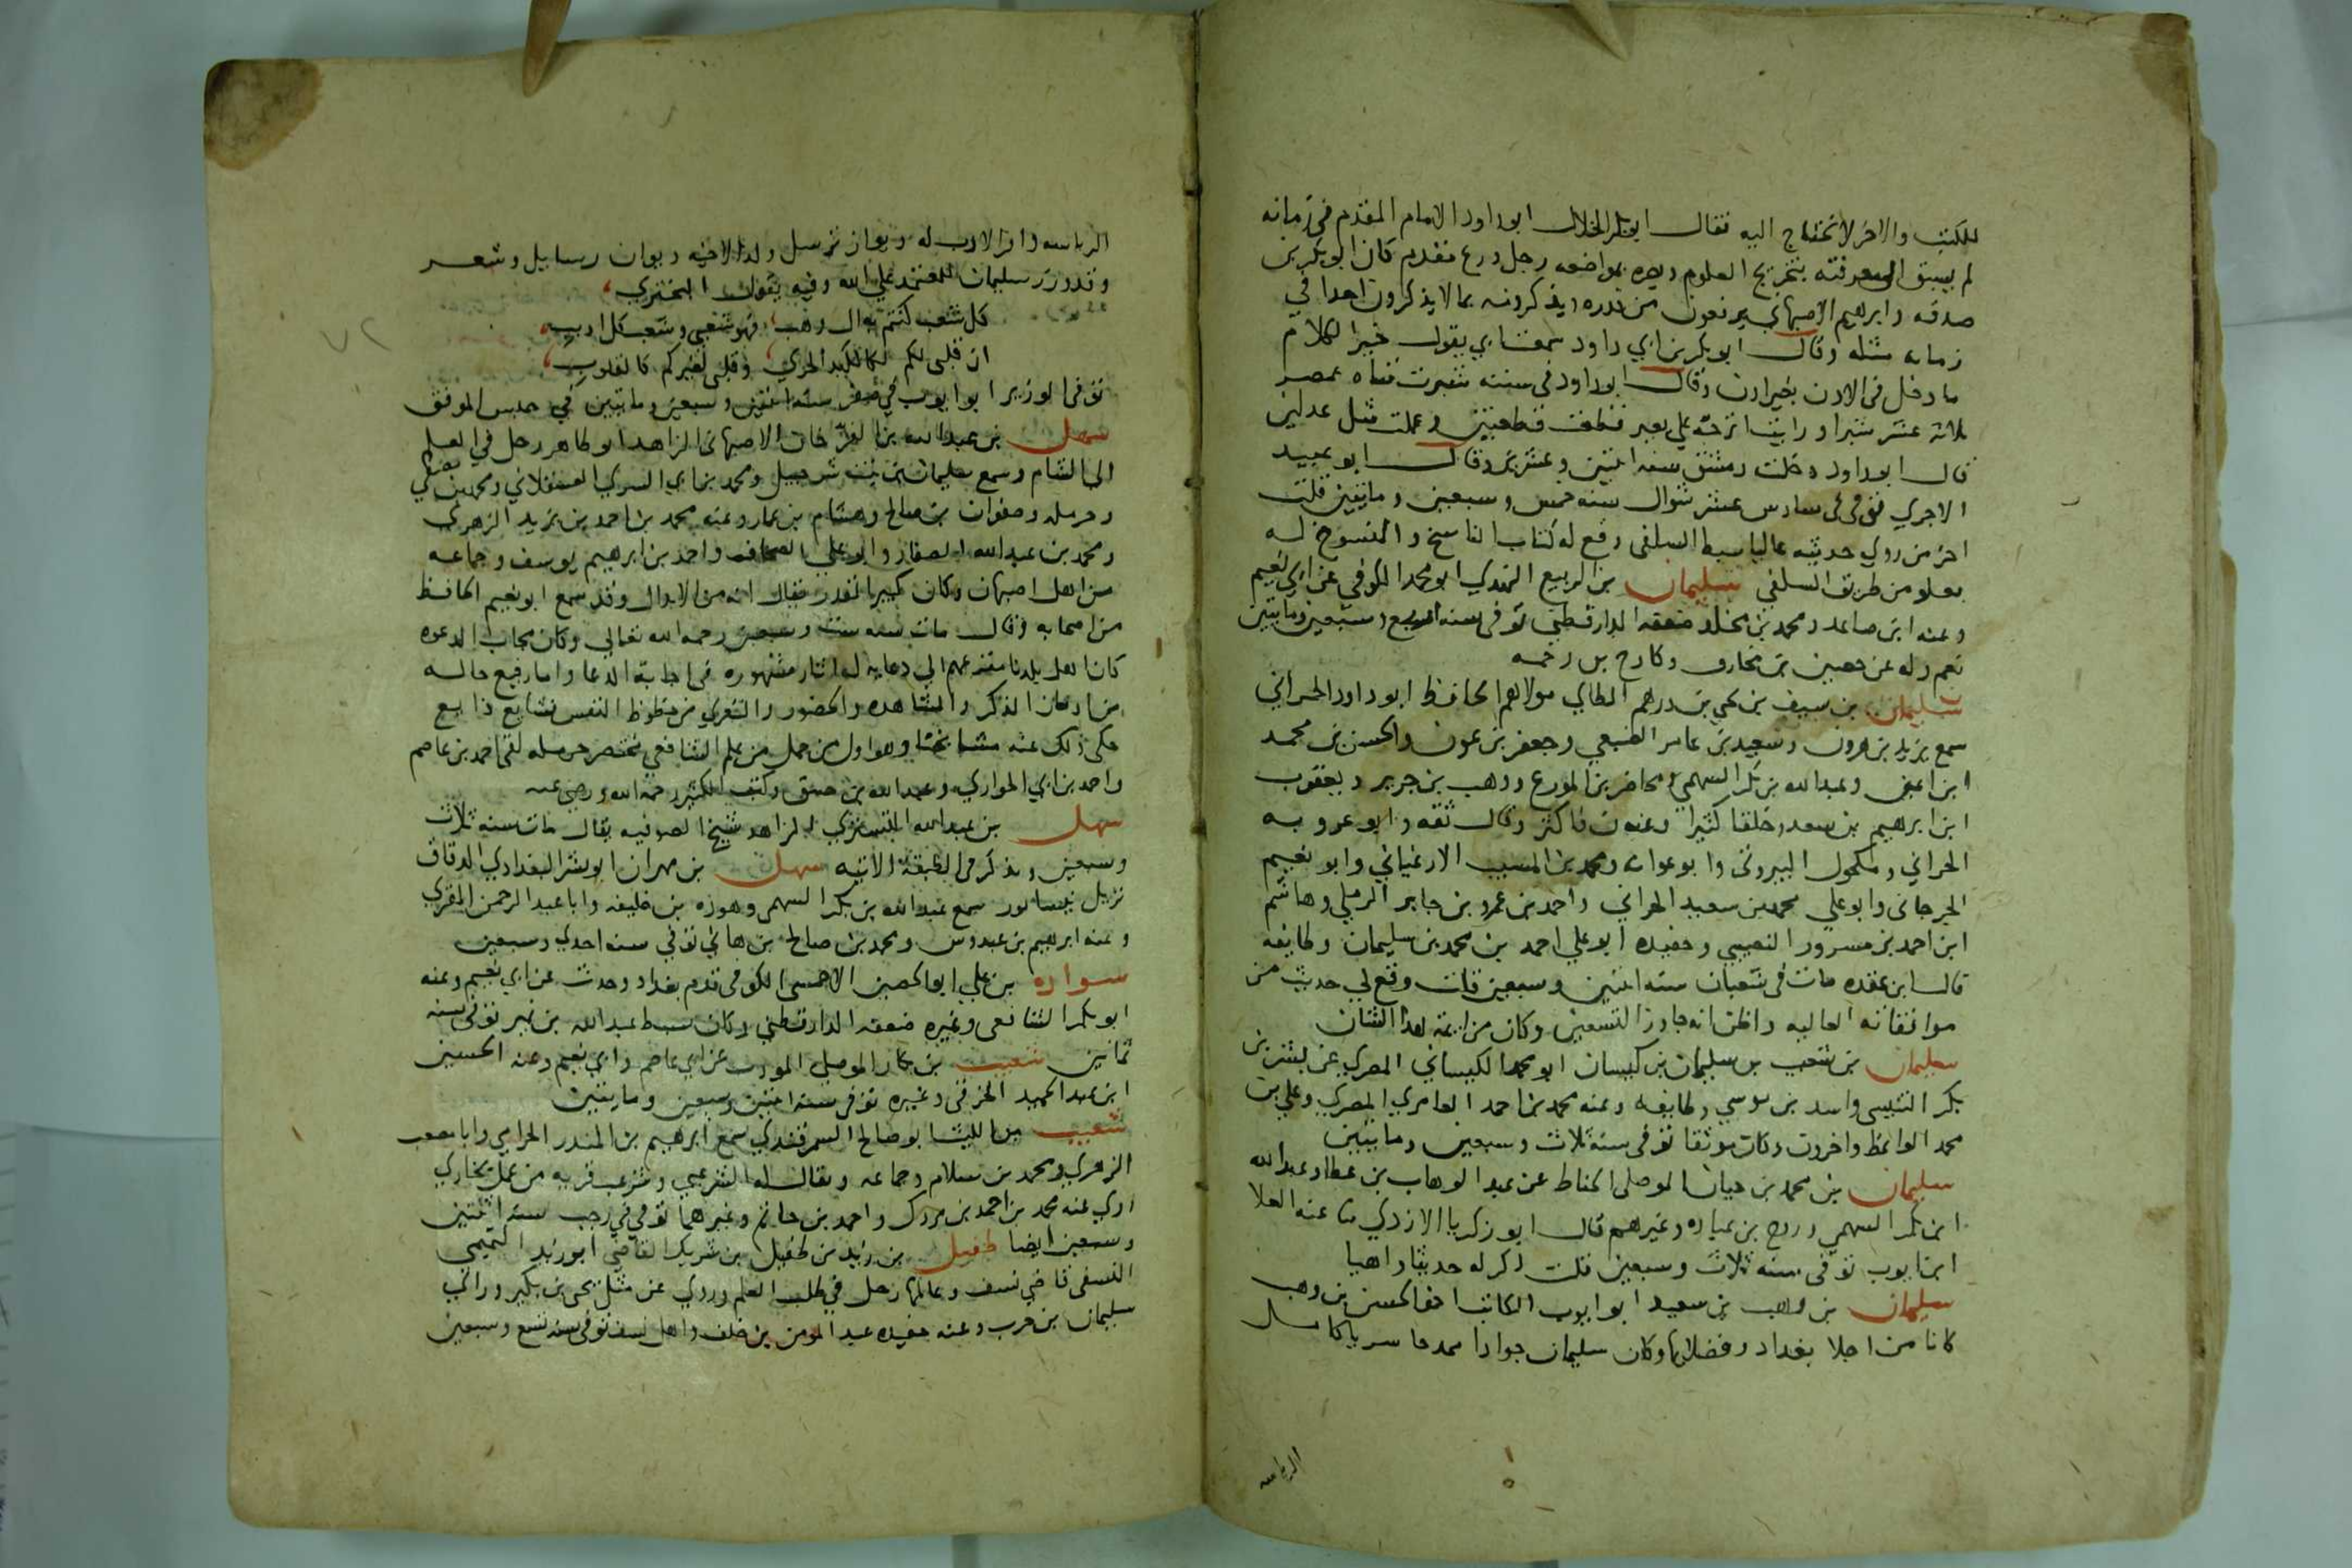 للكتب والاخر لا تحتاج اليه فقال ابو بكر الخلال ابو داود الامام المقدم في زمانه
لم يسبق الى معرفته بتخريج العلوم وبصره بمواضعه رجل ورع مقدم كان ابو بكر بن
صدقه وابرهيم الاصبهاني يرفعون من قدره ويذكرونه بما لا يذكرون احدا في
زمانه مثله وقال ابو بكر بن ابي داود سمعت ابي يقول خير الكلام
ما دخل في الاذن بغير اذن وقال ابو داود في سننه شبرت قثاه بمصر
ثلاثه عشر شبرا ورايت اترجه على بعير قطعت قطعتين وعملت مثل عدلين
قال ابو داود دخلت دمشق سنه اثنتين وعشرين وقال ابو عبيد
الاجري توفي في سادس عشر شوال سنه خمس وسبعين ومايتين قلت
اخر من روي حديثه عاليا سبط السلفي وقع له كتاب الناسخ والمنسوخ له
بعلو من طريق السلفي سليمان بن الربيع النهدي ابو محمد الكوفي عن ابي نعيم
وعنه ابن صاعد ومحمد بن مخلد ضعفه الدارقطني توفي سنه اربع وسبعين ومايتين
نعم وله عن حصين بن مخارق وكادح بن رحمه
سليمان بن سيف بن يحيى بن درهم الطاي مولاهم الحافظ ابو داود الحراني
سمع يزيد بن هرون وسعيد بن عامر الضبعي وجعفر بن عون والحسن بن محمد
ابن اعين وعبد الله بن بكر السهمي ومحاضر بن المورع ووهب بن جرير ويعقوب
ابن ابرهيم بن سعد وخلقا كثيرا وعنه ن فاكثر وقال ثقه وابو عروبه
الحراني ومكحول البيروتي وابو عوانه ومحمد بن المسيب الارغياني وابو نعيم
الجرجاني وابو علي محمد بن سعيد الحراني واحمد بن عمرو بن جابر الرملي وهاشم
ابن احمد بن مسرور النصيبي وحفيده ابو علي احمد بن محمد بن سليمان وطايفه
قال ابن عقده مات في شعبان سنه اثنتين وسبعين قلت وقع لي حديث من
موافقاته العاليه واظن انه جاوز التسعين وكان من ايمة هذا الشان
سليمان بن شعيب بن سليمان بن كيسان ابو محمد الكيساني المصري عن بشر بن
بكر التنيسي واسد بن موسي وطايفه وعنه محمد بن احمد العامري المصري وعلي بن
محمد الواعظ واخرون وكان موثقا توفي سنه ثلاث وسبعين ومايتين
سليمان بن محمد بن حيان الموصلي الحناط عن عبد الوهاب بن عطا وعبد الله
ابن بكر السهمي وروح بن عباده وغيرهم قال ابو زكريا الازدي ثنا عنه العلا
ابن ايوب توفي سنه ثلاث وسبعين قلت ذكر له حديثا واهيا
سليمان بن وهب بن سعيد ابو ايوب الكاتب اخو الحسن بن وهب
كانا من اجلا بغداد وفضلايها وكان سليمان جوادا ممدحا سريا كامل
الرياسه
الرياسه وافر الادب له ديوان ترسل ولذا لاخيه ديوان رسايل وشعر
وقد وزر سليمان للمعتمد علي الله وفيه يقول البحتري
كل شعب كنتم به ال وهب فهو شعبي وشعب كل اديب
ان قلبي لكم لكالكبد الحري وقلبي لغيركم كالقلوب
توفي الوزير ابو ايوب في صفر سنه اثنتين وسبعين ومايتين في حبس الموفق
سهل بن عبد الله بن الفرخان الاصبهاني الزاهد ابو طاهر رحل في العلم
الى الشام وسمع سليمان بن بنت شرحبيل ومحمد بن ابي السري العسقلاني ومحمد بن مصفي
وحرمله وصفوان بن صالح وهشام بن عمار وعنه محمد بن احمد بن يزيد الزهري
ومحمد بن عبد الله الصفار وابو علي الصحاف واحمد بن ابرهيم يوسف وجماعه
من اهل اصبهان وكان كبير القدر يقال انه من الابدال وقد سمع ابو نعيم الحافظ
من اصحابه وقال مات سنه ست وسبعين رحمه الله تعالى وكان مجاب الدعوه
كان اهل بلدنا مفزعهم الى دعايه له اثار مشهوره في اجابة الدعا واما رفيع حاله
من ادمان الذكر والمشاهده والحضور والتعري من حظوظ النفس فشايع ذايع
حكى ذلك عنه مشايخنا وهو اول من حمل من علم الشافعي مختصر حرمله لقي احمد بن عاصم
واحمد بن ابي الحواري وعبد الله بن خبيق وكتب الكثير رحمه الله ورضي عنه
سهل بن عبد الله التستري الزاهد شيخ الصوفيه يقال مات سنه ثلاث
وسبعين ويذكر في الطبقة الاتيه سهل بن مهران ابو بشر البغدادي الدقاق
نزيل نيسابور سمع عبد الله بن بكر السهمي وهوذه بن خليفه وابا عبد الرحمن المقري
وعنه ابرهيم بن عبدوس ومحمد بن صالح بن هاني توفي سنه احدي وسبعين
سواده بن علي ابو الحصين الاحمسي الكوفي قدم بغداد وحدث عن ابي نعيم وعنه
ابو بكر الشافعي وغيره ضعفه الدارقطني وكان سبط عبد الله بن نمير توفي سنه
ثمانين شعيب بن بكار الموصلي المودب عن ابي عاصم وابي نعيم وعنه الحسين
ابن عبد الحميد الخرقي وغيره توفي سنه اثنتين وسبعين ومايتين
شعيب بن الليث ابو صالح السمرقندي سمع ابرهيم بن المنذر الحزامي وابا مصعب
الزهري ومحمد بن سلام وجماعه ويقال له الشرعبي وشرعب قريه من عمل بخاري
روي عنه محمد بن احمد بن مردك واحمد بن حاتم وغيرهما توفي في رجب سنه اثنتين
وسبعين ايضا طفيل بن زيد بن طفيل بن شريك القاضي ابو زيد التميمي
النسفي قاضي نسف وعالمها رحل في طلب العلم وروي عن مثل يحيى بن بكير وراي
سليمان بن حرب وعنه حفيده عبد المومن بن خلف واهل نسف توفي سنه تسع وسبعين